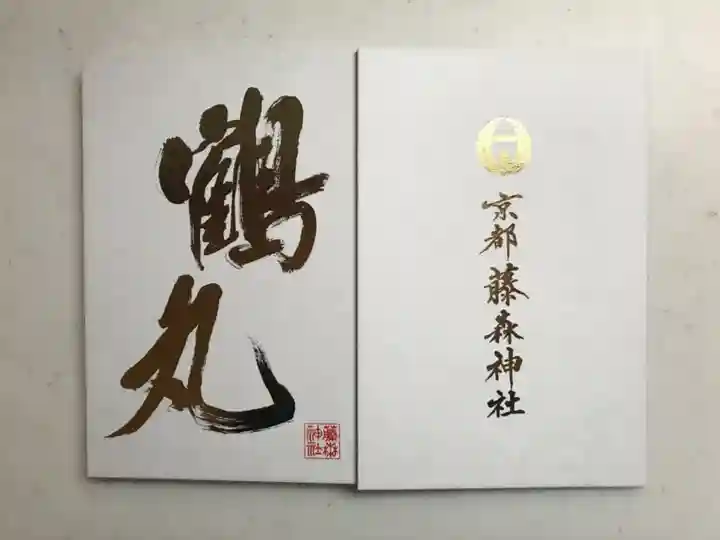 鶴丸
藤森
神社
京都藤森神社